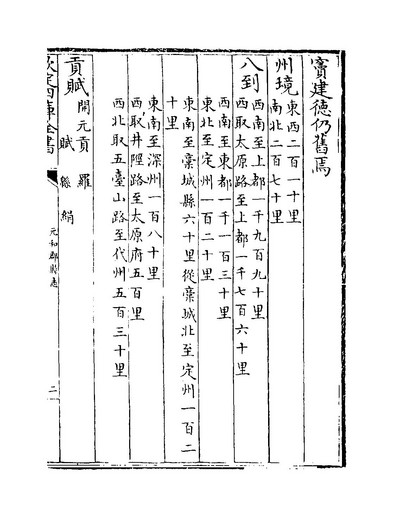 竇建德仍舊焉
州境 東西二百一十里
南北二百七十里
八到 西南至上都一千九百九十里
西取太原路至上都一千七百六十里
西南至東都一千一百三十里
東北至定州一百二十里
東南至藁城縣六十里從藁城北至定州一百二
十里
東南至深州一百八十里
西取井陘路至太原府五百里
西北取五臺山路至代州五百三十里
貢賦 開元貢 羅
賦 緜 絹
欽定四庫全書 元和郡縣志 二